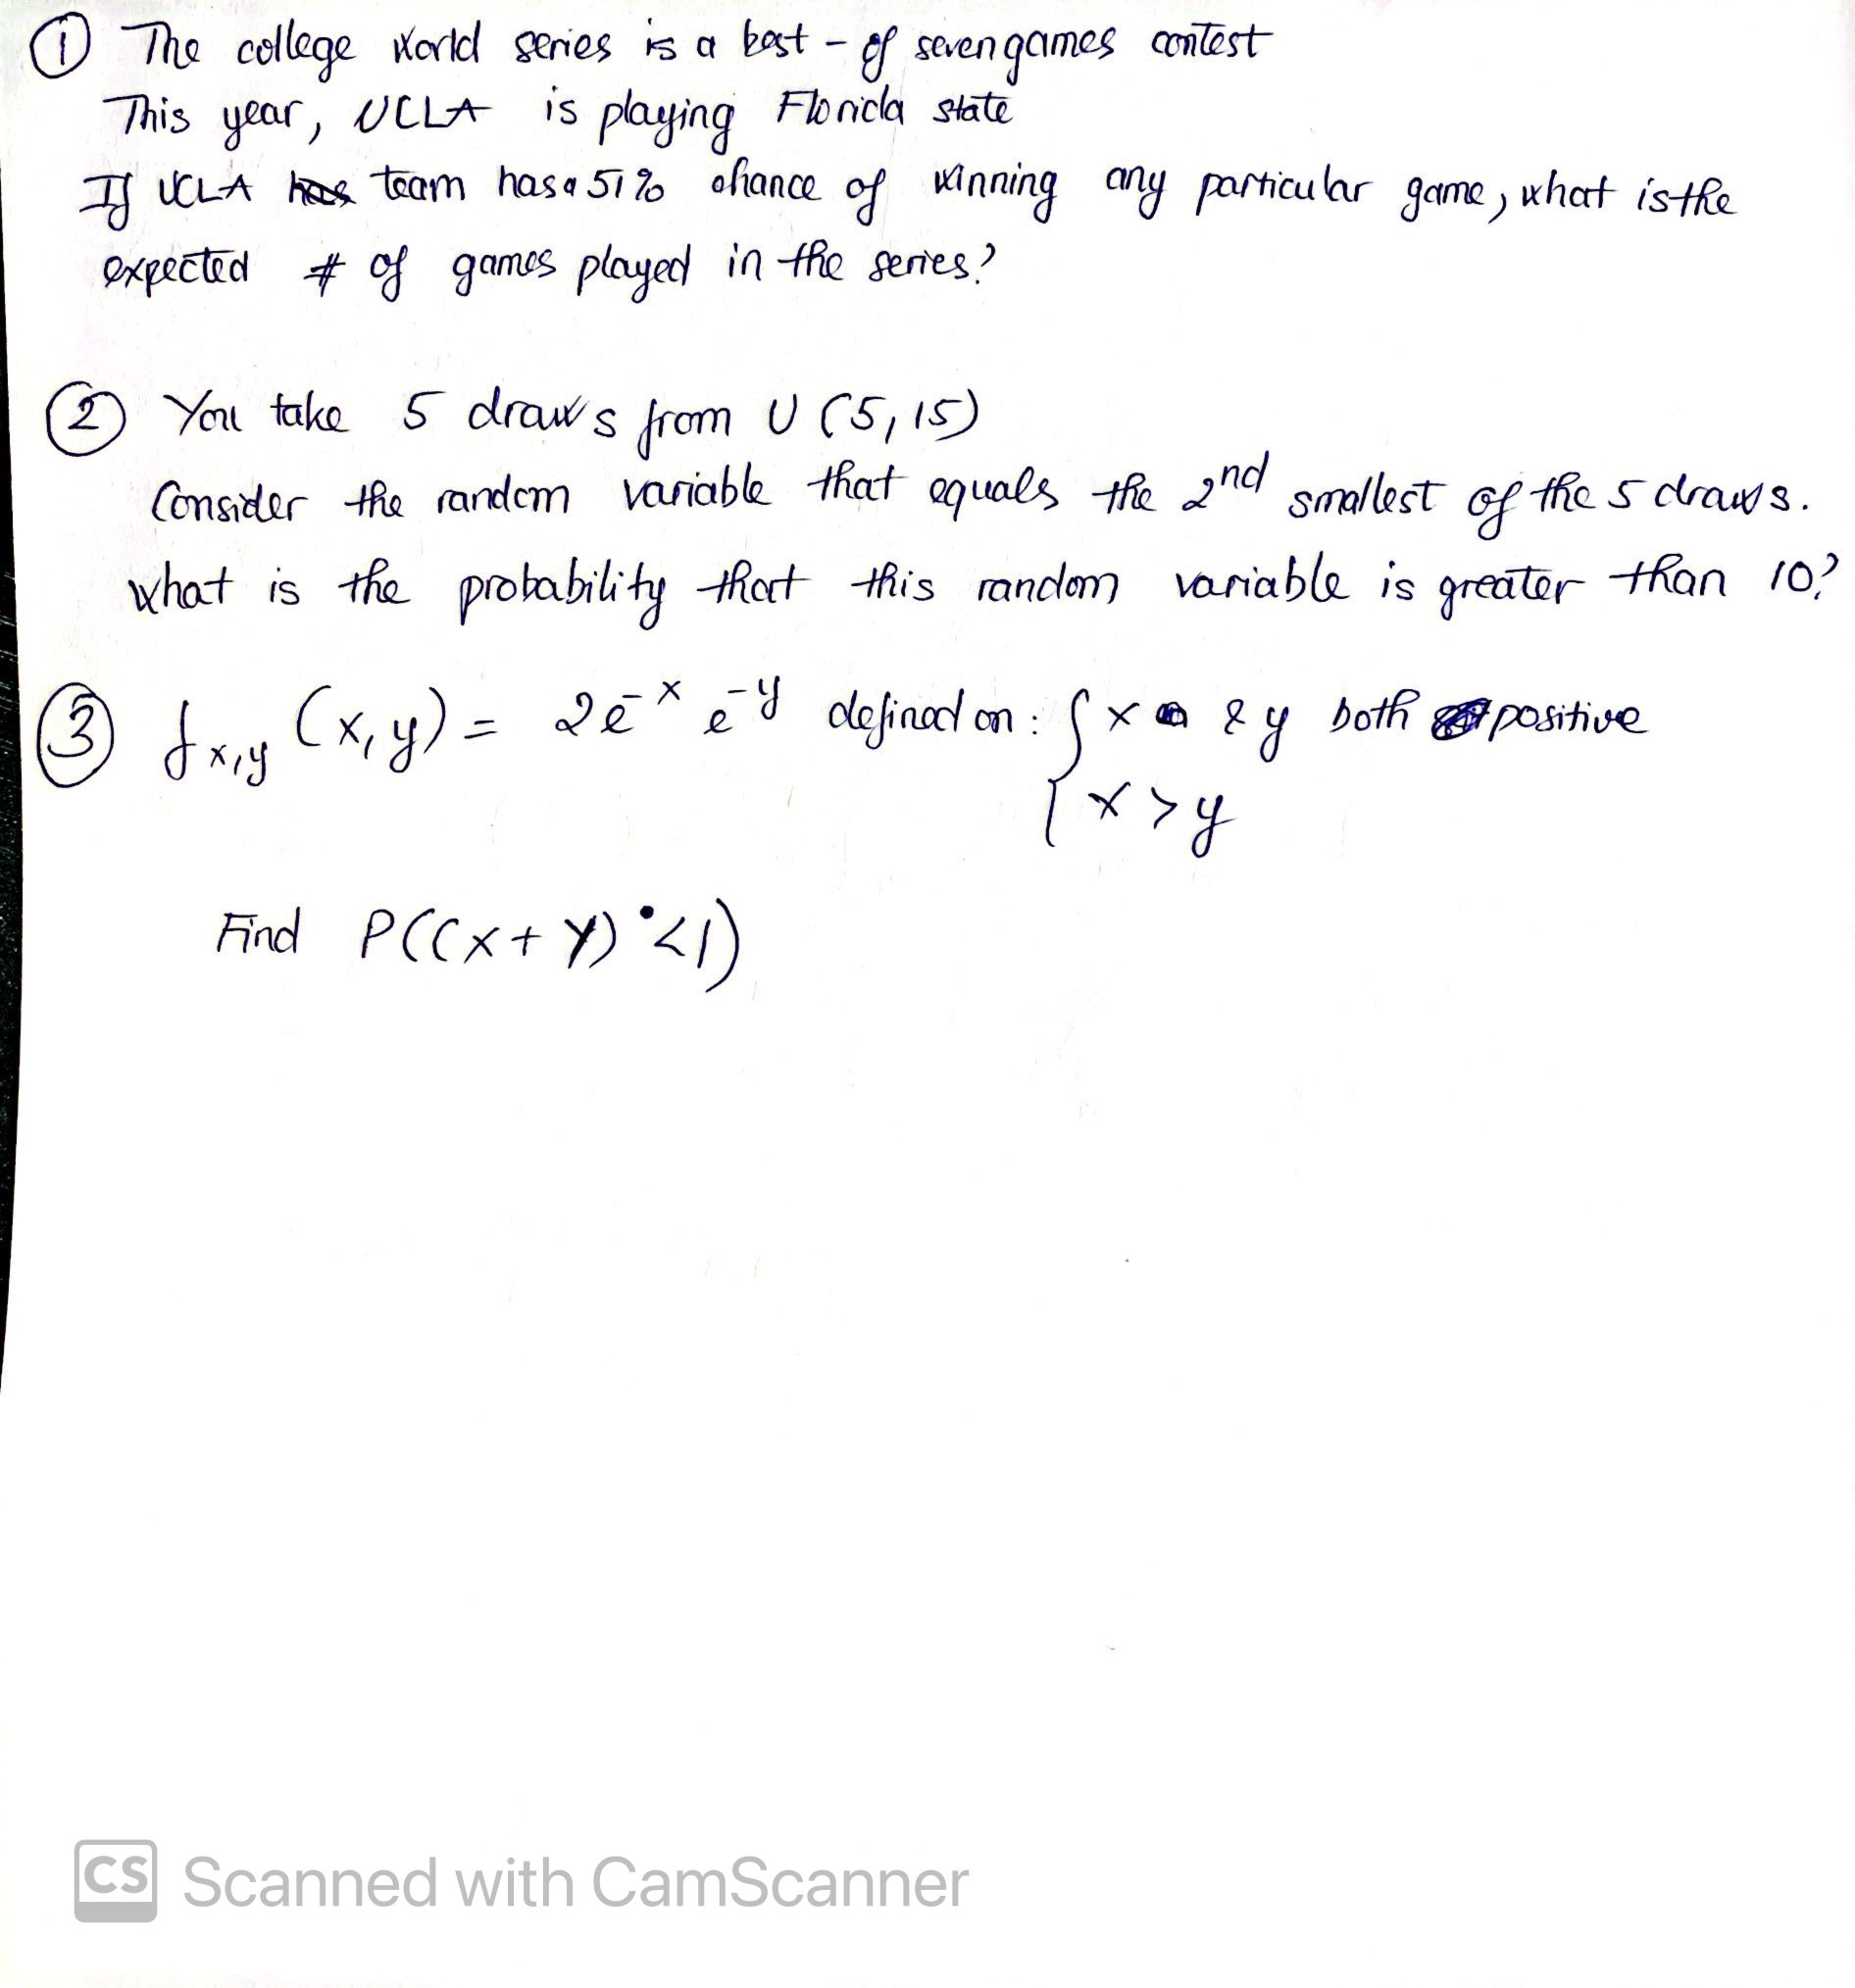 ① The college world series is a best - of seven games contest
This year, UCLA is playing Florida state
If UCLA has team has a 51% chance of winning any particular game, what is the
expected # of games played in the series?
② You take 5 draws from U (5, 15)
Consider the random variable that equals the 2nd smallest of the 5 draws.
what is the probability that this random variable is greater than 10?
③ f x,y (x, y) = 2e^-x e^-y defined on : { x & y both positive
x > y
Find P((x + Y) < 1)
CS Scanned with CamScanner